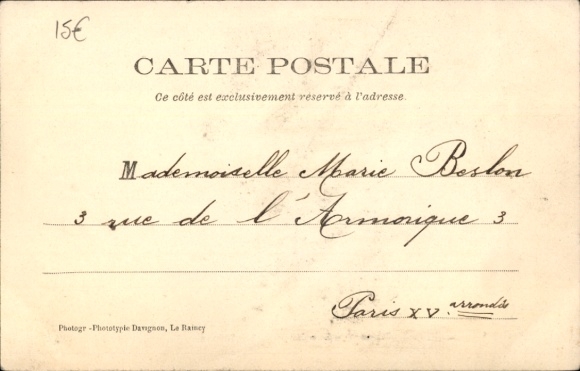 15€
CARTE POSTALE
Ce côté est exclusivement reservé à l'adresse.
Mademoiselle Marie Beslon
3 rue de l'Armorique 3
Paris XV. arrondis
Photogr-Phototypie Davignon, Le Raincy